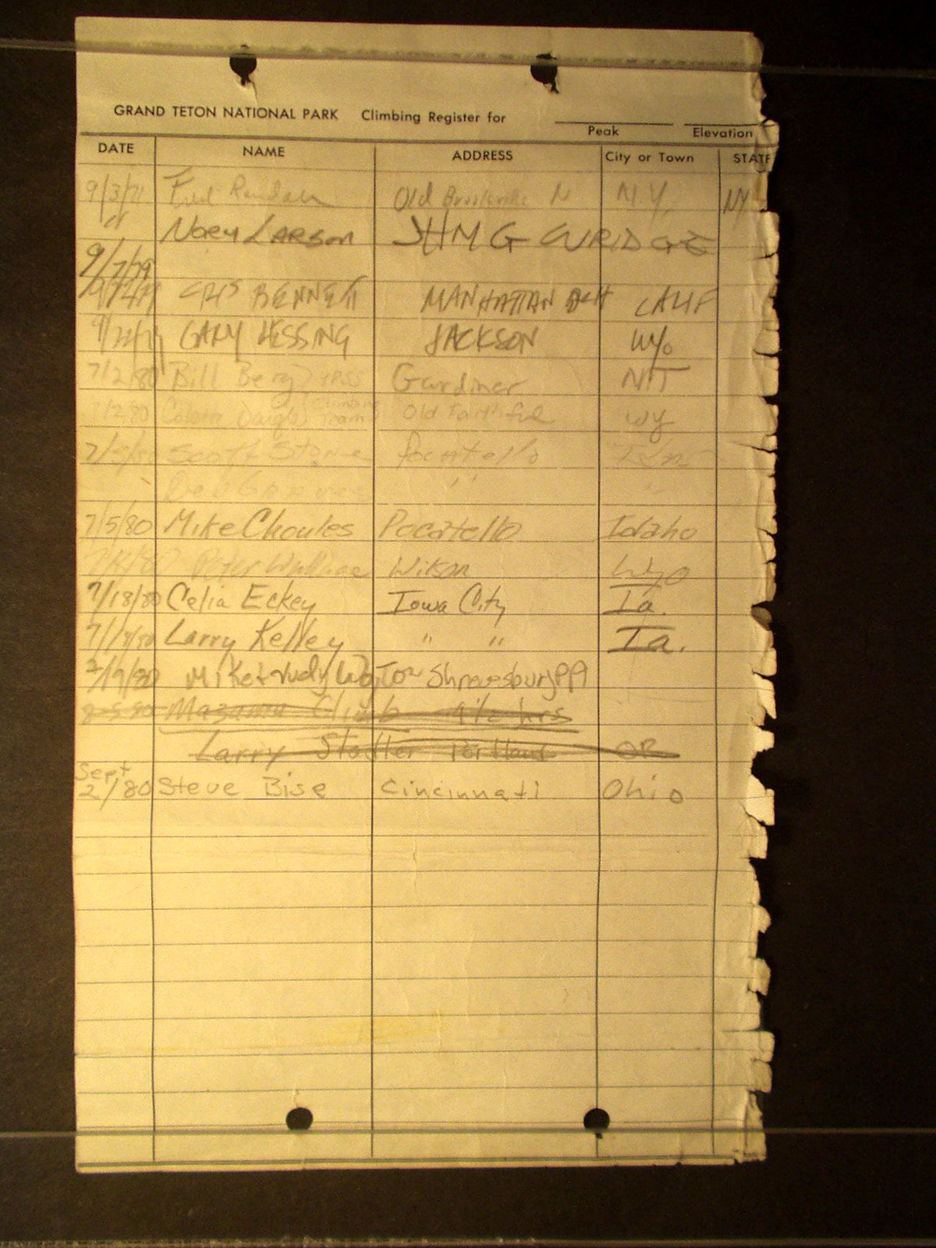 GRAND TETON NATIONAL PARK Climbing Register for
Peak Elevation
DATE NAME ADDRESS City or Town STATE
9/3/79 Old N N.Y. NY
Norm Larson JHMG
9/7/79
CRIS BENNETT MANHATTAN BCH CALIF
GARY HESSING JACKSON Wyo
7/2/80 Bill Berg Gardiner MT
7/2/80 Old Faithful wy
Scott Stone Pocatello
Deb " "
7/5/80 Mike Choules Pocatello Idaho
Peter Wallace Wilson Wyo
7/18/80 Celia Eckey Iowa City Ia.
7/18/80 Larry Kelley " " Ia.
7/19/80 Mike + Judy Shrewsbury PA
8-5-80 Mazama Climb 4 1/2 hrs
Larry Stadler Portland OR
Sept
2/80 Steve Bise Cincinnati Ohio